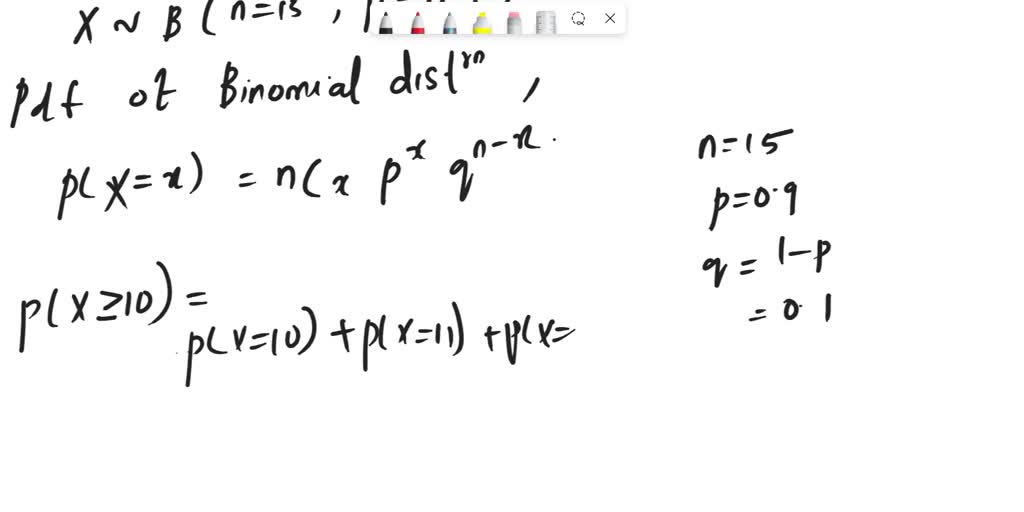 X ~ B ( n=15 ,
Pdf of Binomial distrn ,
p( X = x ) = nCx p^x q^n-x .
n=15
p=0.9
q = 1-p
= 0.1
p( X ≥10 ) =
p( X=10 ) + p( X=11 ) + p( X=